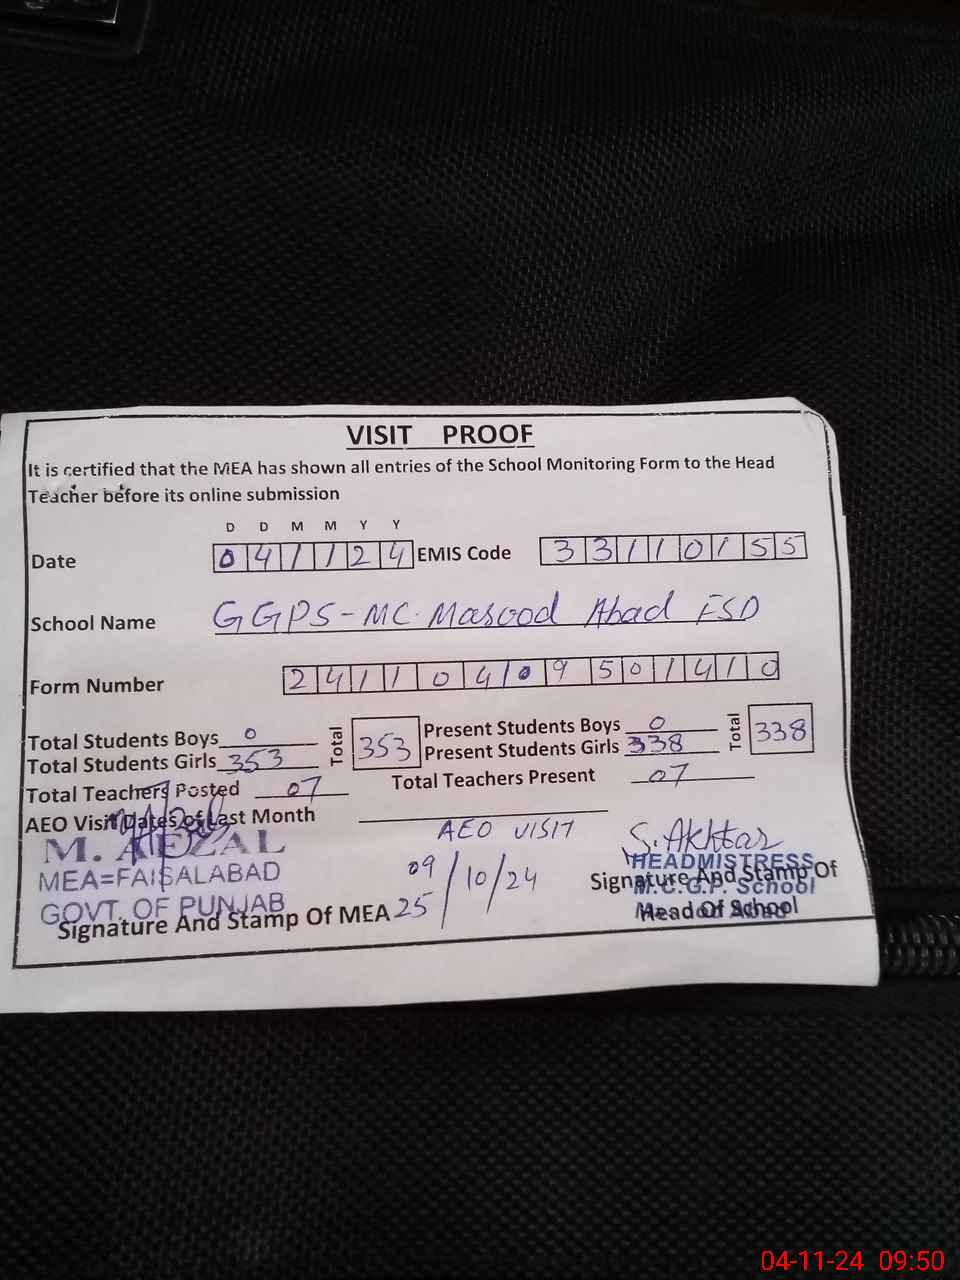 VISIT PROOF
It is certified that the MEA has shown all entries of the School Monitoring Form to the Head
Teacher before its online submission
D D M M Y Y
Date 041124 EMIS Code 33110155
School Name GGPS-MC. Masood Abad FSD
Form Number 24110409501410
Total Students Boys 0 Total 353 Present Students Boys 0 Total 338
Total Students Girls 353 Present Students Girls 338
Total Teachers Posted 07 Total Teachers Present 07
AEO Visit Dates of Last Month
AEO VISIT
M. AFZAL
MEA=FAISALABAD
GOVT. OF PUNJAB
Signature And Stamp Of MEA
09
25 /10/24
S. Akhtar
HEADMISTRESS
Signature And Stamp Of
M.C.G.P. School
Head Of School
04-11-24 09:50